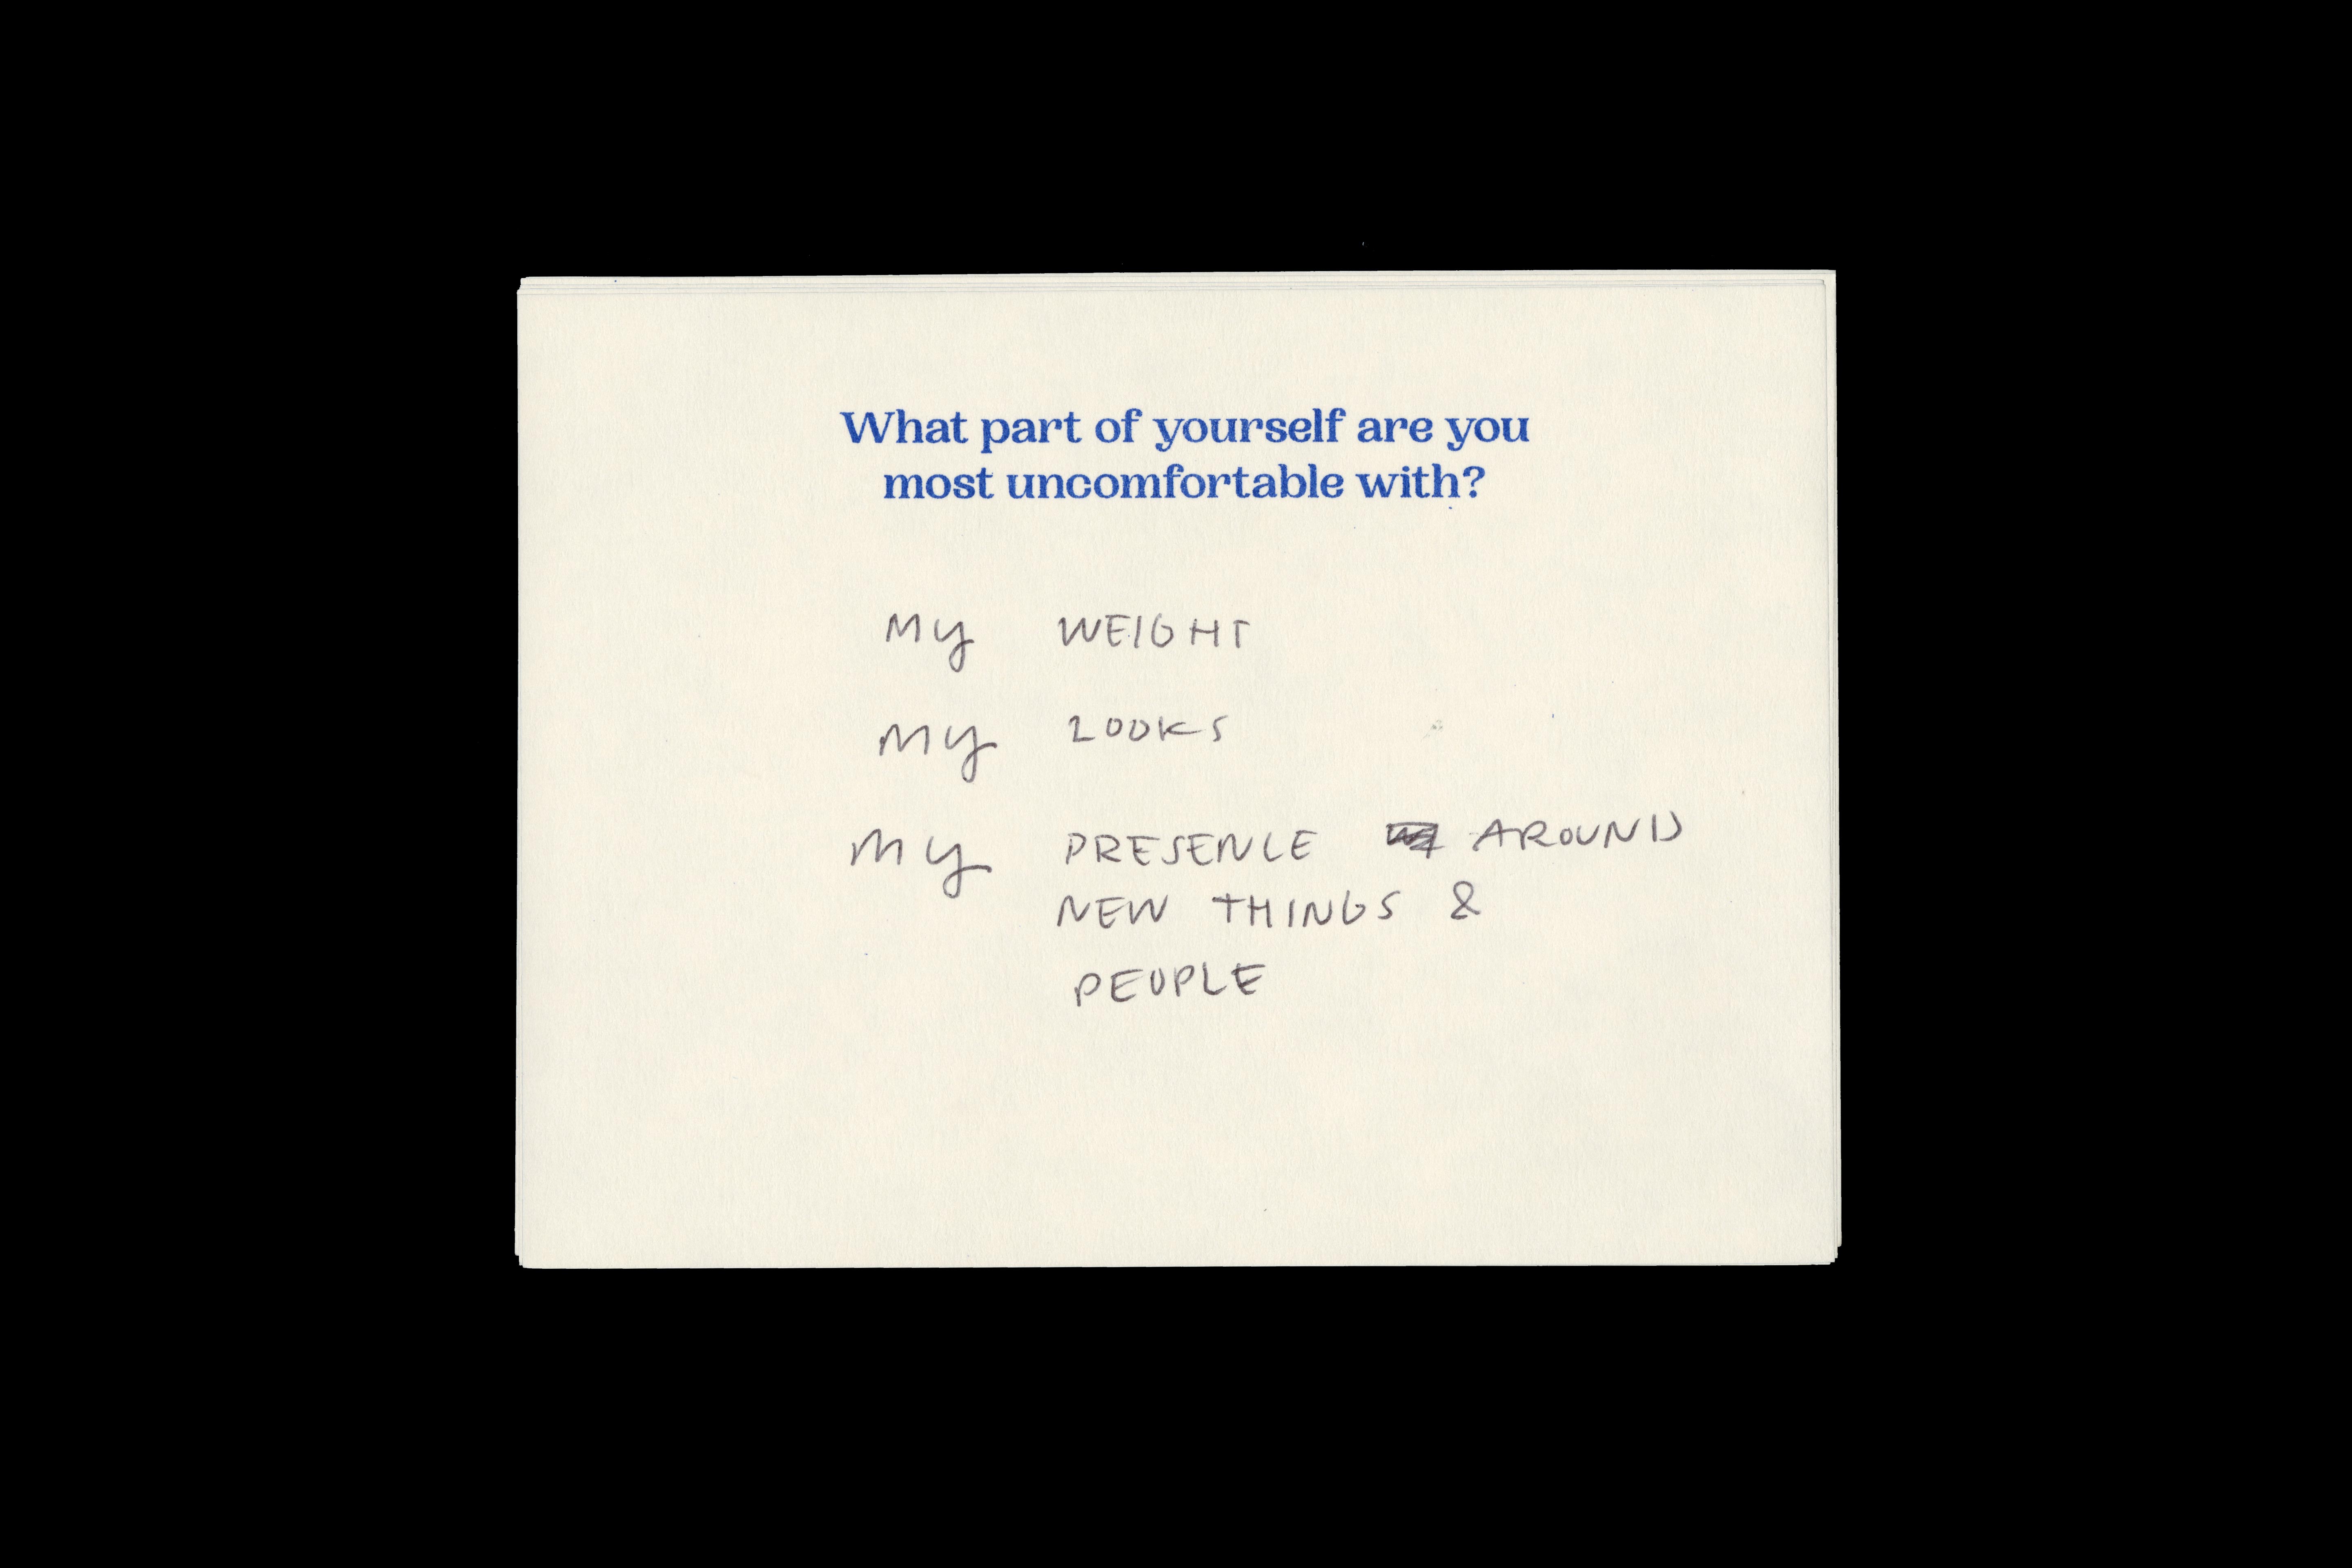 What part of yourself are you
most uncomfortable with?
My WEIGHT
My LOOKS
My PRESENCE AROUND
NEW THINGS &
PEOPLE